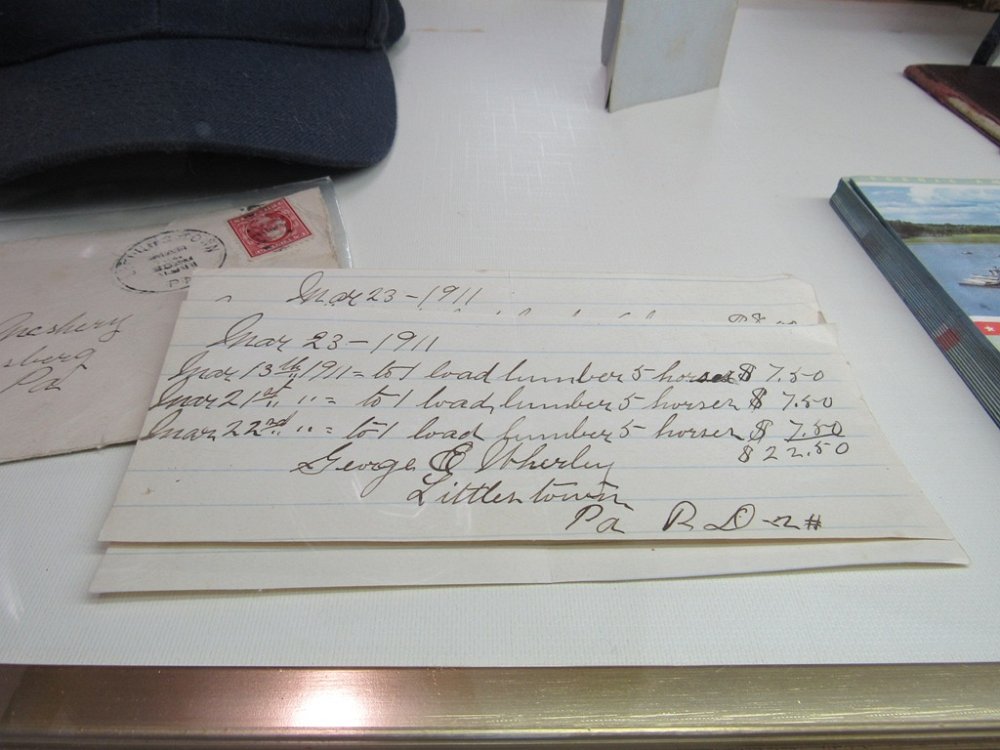 Mar 23 - 1911
Mar 23 - 1911
Mar 13th 1911 = to 1 load lumber 5 horses $ 7.50
Mar 21st " " = to 1 load lumber 5 horses $ 7.50
Mar 22nd " " = to 1 load lumber 5 horses $ 7.50
$ 22.50
George E Wherley
Littlestown
Pa R D - 2 #
sberg
Pa